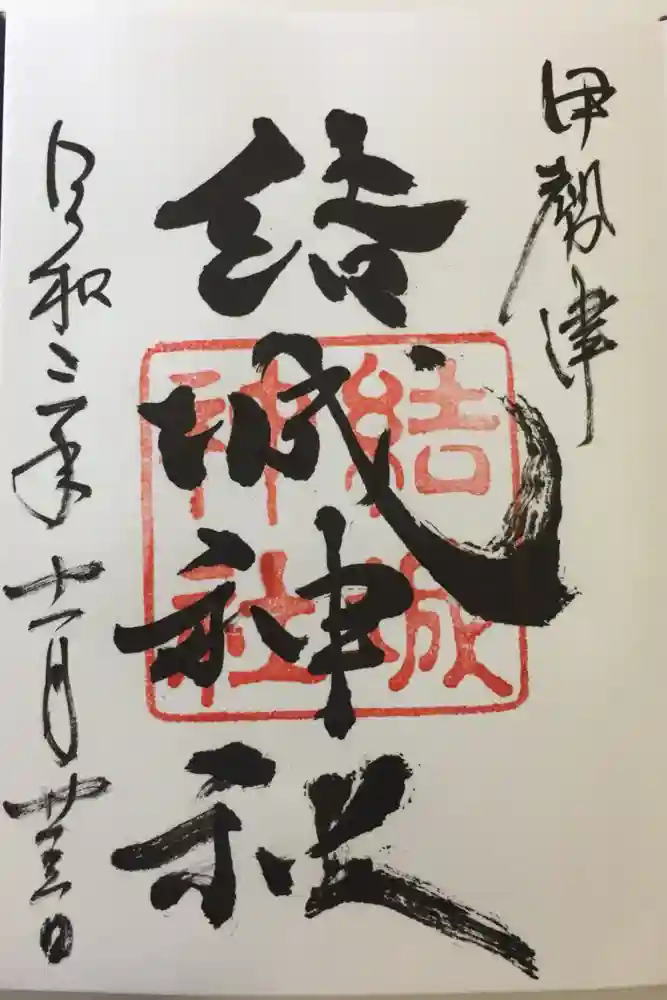 伊勢津
結城神社
結城
神社
令和三年十一月廿三日